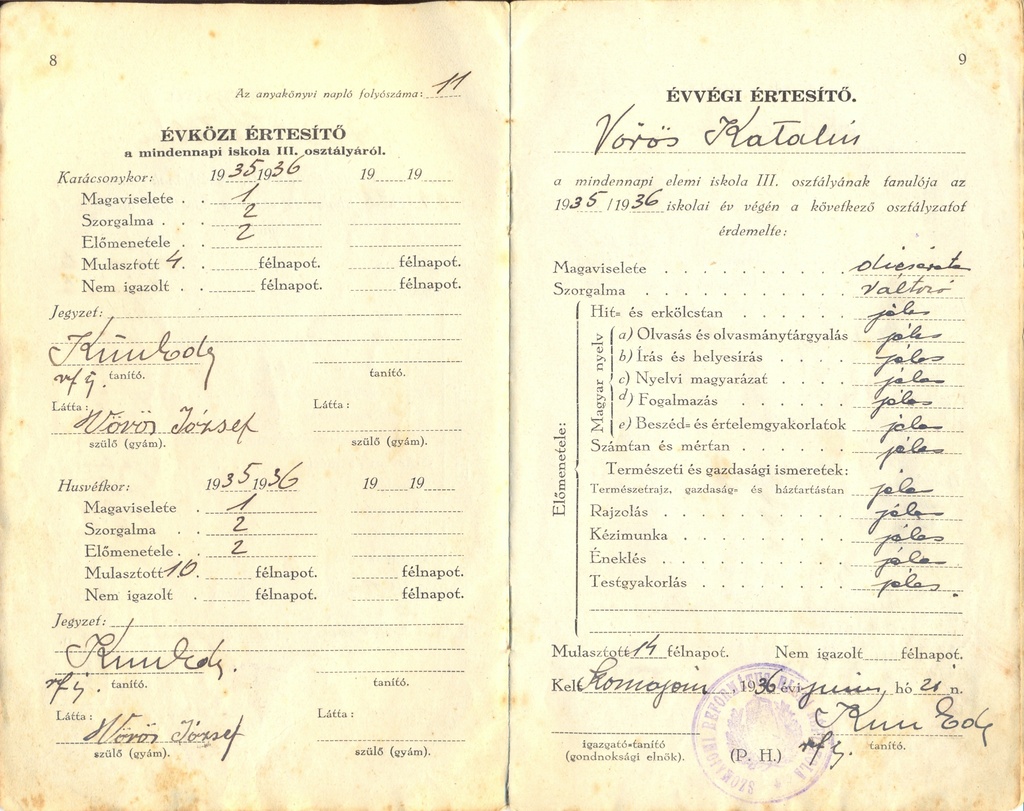 8
Az anyakönyvi napló folyószáma: 11
ÉVKÖZI ÉRTESÍTŐ
a mindennapi iskola III. osztályáról.
Karácsonykor: 1935 1936 19 19
Magaviselete . . 1
Szorgalma . . . 2
Előmenetele . . 2
Mulasztott 4. . félnapot. félnapot.
Nem igazolt . félnapot. félnapot.
Jegyzet:
Kun Ede
tanító. tanító.
Látta: Látta:
Vörös József
szülő (gyám). szülő (gyám).
Husvétkor: 1935 1936 19 19
Magaviselete . 1
Szorgalma . . 2
Előmenetele . . 2
Mulasztott 10. félnapot. félnapot.
Nem igazolt . félnapot. félnapot.
Jegyzet:
Kun Ede.
tanító. tanító.
Látta: Látta:
Vörös József
szülő (gyám). szülő (gyám).
9
ÉVVÉGI ÉRTESÍTŐ.
Vörös Katalin
a mindennapi elemi iskola III. osztályának tanulója az
1935/1936 iskolai év végén a következő osztályzatot
érdemelte:
Magaviselete . . . . . . . . . dicsérete
Szorgalma . . . . . . . . . . változó
Előmenetele:
Hit= és erkölcstan . . . . . jeles
Magyar nyelv
a) Olvasás és olvasmánytárgyalás jeles
b) Írás és helyesírás . . . . jeles
c) Nyelvi magyarázat . . . . jeles
d) Fogalmazás . . . . . . jeles
e) Beszéd= és értelemgyakorlatok jeles
Számtan és mértan . . . . . . jeles
Természeti és gazdasági ismeretek:
Természetrajz, gazdaság= és háztartástan jeles
Rajzolás . . . . . . . . . jeles
Kézimunka . . . . . . . . jeles
Éneklés . . . . . . . . . jeles
Testgyakorlás . . . . . . . jeles.
Mulasztott 14 félnapot. Nem igazolt félnapot.
Kelt 1936 évi junius hó 21 n.
Kun Ede
igazgató=tanító tanító.
(gondnoksági elnök). (P. H.)